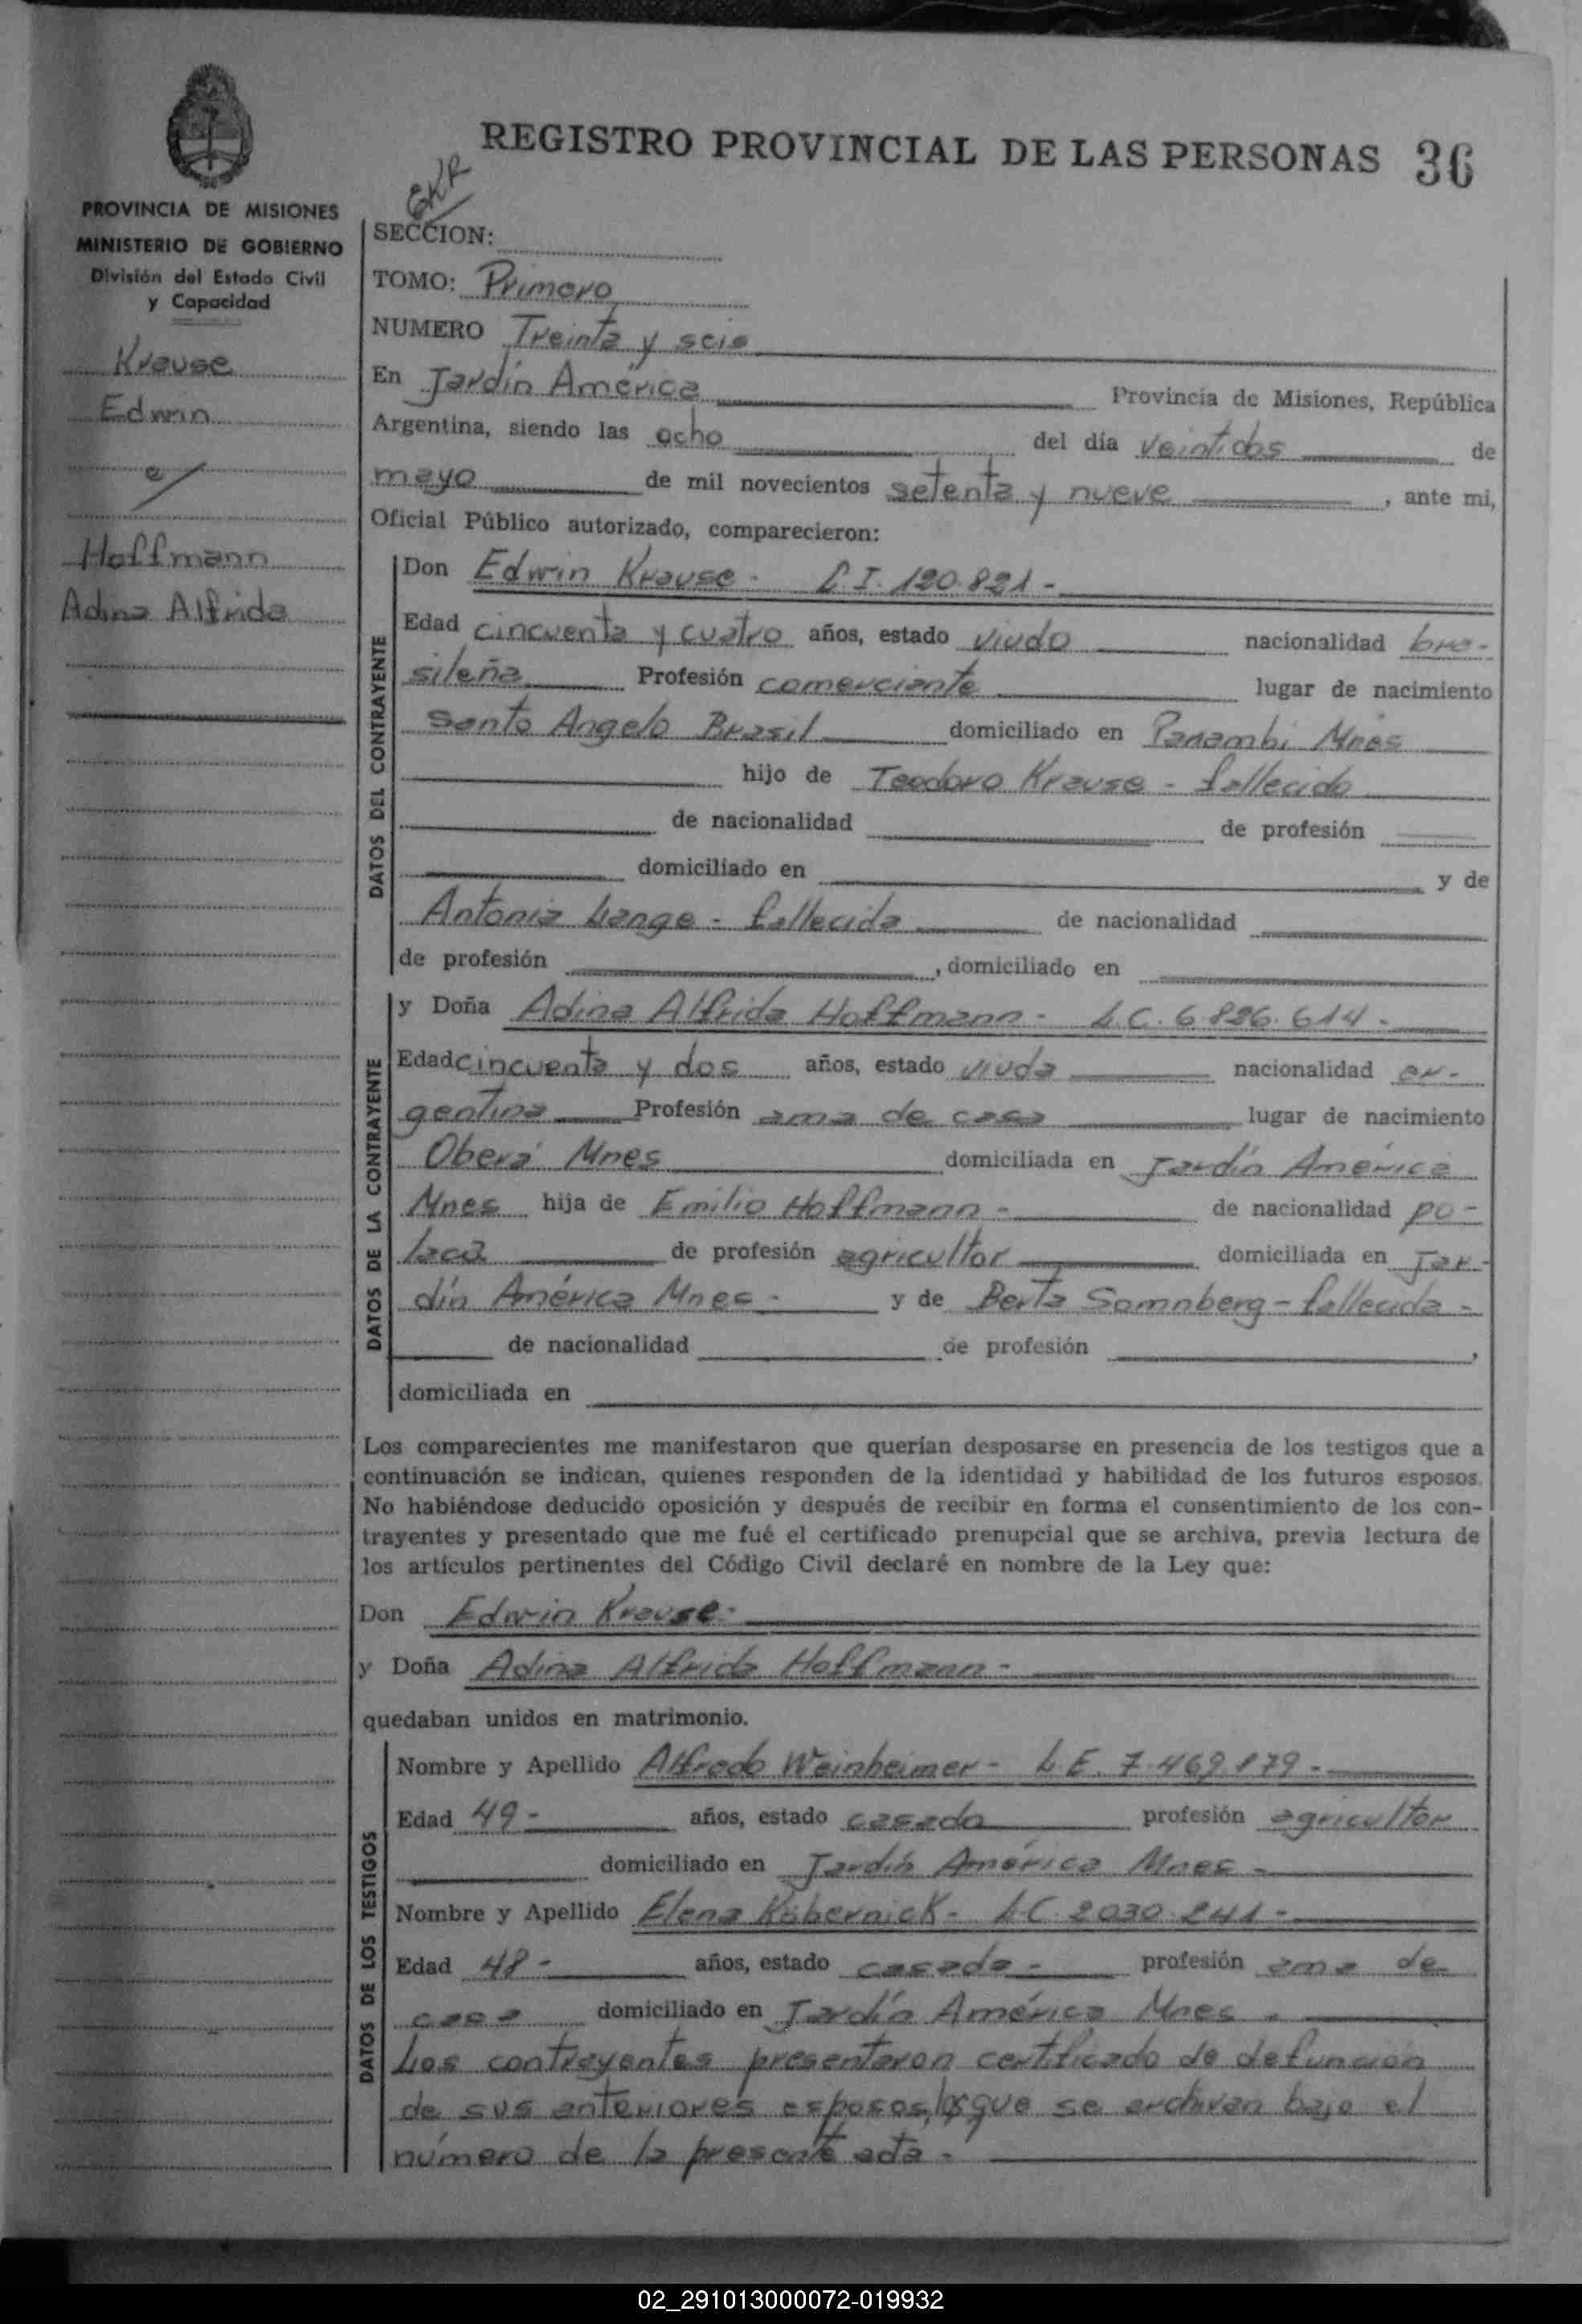 REGISTRO PROVINCIAL DE LAS PERSONAS 36
PROVINCIA DE MISIONES
MINISTERIO DE GOBIERNO
División del Estado Civil
y Capacidad
Krause
Edwin
c/
Hoffmann
Adina Alfrida
SECCION:
TOMO: Primero
NUMERO Treinta y seis
En Jardín América Provincia de Misiones, República
Argentina, siendo las ocho del día veintidos de
mayo de mil novecientos setenta y nueve, ante mi,
Oficial Público autorizado, comparecieron:
DATOS DEL CONTRAYENTE
Don Edwin Krause - C.I. 120.821 -
Edad cincuenta y cuatro años, estado viudo nacionalidad bra-
sileña Profesión comerciante lugar de nacimiento
Santo Angelo Brasil domiciliado en Panambi Mnes
hijo de Teodoro Krause - fallecido
de nacionalidad de profesión
domiciliado en y de
Antonia Lange - fallecida de nacionalidad
de profesión , domiciliado en
DATOS DE LA CONTRAYENTE
y Doña Adina Alfrida Hoffmann - L.C. 6.826.614 -
Edad cincuenta y dos años, estado viuda nacionalidad ar-
gentina Profesión ama de casa lugar de nacimiento
Oberá Mnes domiciliada en Jardín América
Mnes hija de Emilio Hoffmann - de nacionalidad po-
laca de profesión agricultor domiciliada en Jar-
dín América Mnes - y de Berta Somnberg - fallecida -
de nacionalidad de profesión ,
domiciliada en
Los comparecientes me manifestaron que querían desposarse en presencia de los testigos que a
continuación se indican, quienes responden de la identidad y habilidad de los futuros esposos.
No habiéndose deducido oposición y después de recibir en forma el consentimiento de los con-
trayentes y presentado que me fué el certificado prenupcial que se archiva, previa lectura de
los artículos pertinentes del Código Civil declaré en nombre de la Ley que:
Don Edwin Krause -
y Doña Adina Alfrida Hoffmann -
quedaban unidos en matrimonio.
DATOS DE LOS TESTIGOS
Nombre y Apellido Alfredo Weinheimer - L.E. 7.469.179 -
Edad 49 - años, estado casado profesión agricultor
domiciliado en Jardín América Mnes -
Nombre y Apellido Elena Kobernick - L.C. 2.030.241 -
Edad 48 - años, estado casada - profesión ama de
casa domiciliado en Jardín América Mnes -
Los contrayentes presentaron certificado de defunción
de sus anteriores esposos, los que se archivan bajo el
número de la presente acta -
02_291013000072-019932